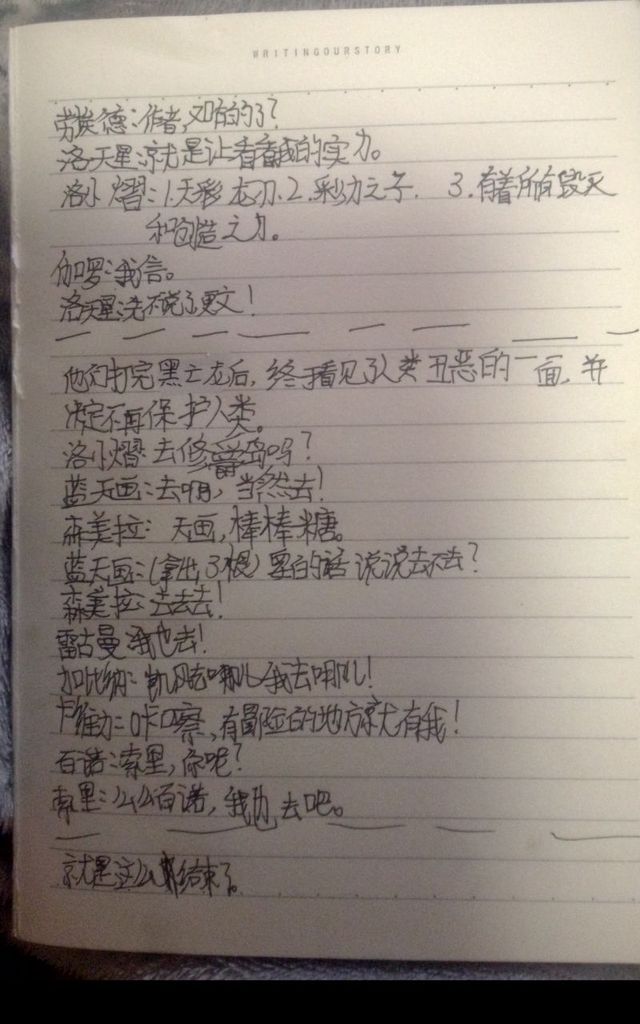 WRITINGOURSTORY
劳埃德:作者,又有的了?
洛天星:就是让看看我的实力。
洛小熠:1.天彩龙刃.2.彩力之子. 3.有着所有毁灭
和创造之力。
伽罗:我信。
洛天星:先不说了更文!
他们打完黑亡龙后,终于看见了人类丑恶的一面,并
决定不再保护人类。
洛小熠:去修爵岛吗?
蓝天画:去呐,当然去!
森美拉:天画,棒棒糖。
蓝天画:(拿出3根)要白的话说说去不去?
森美拉:去去去!
雷古曼:我也去!
加比纳:凯风去哪儿我去哪儿!
卡维力:咔口察,有冒险的地方就有我!
百诺:索里,你呢?
索里:么么百诺,我也去吧。
就是这么结束了。